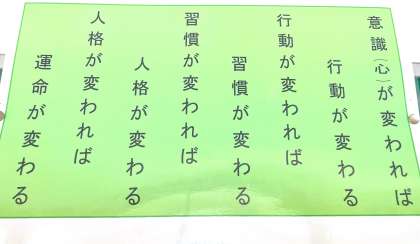 意識(心)が変われば
行動が変わる
行動が変われば
習慣が変わる
習慣が変われば
人格が変わる
人格が変われば
運命が変わる